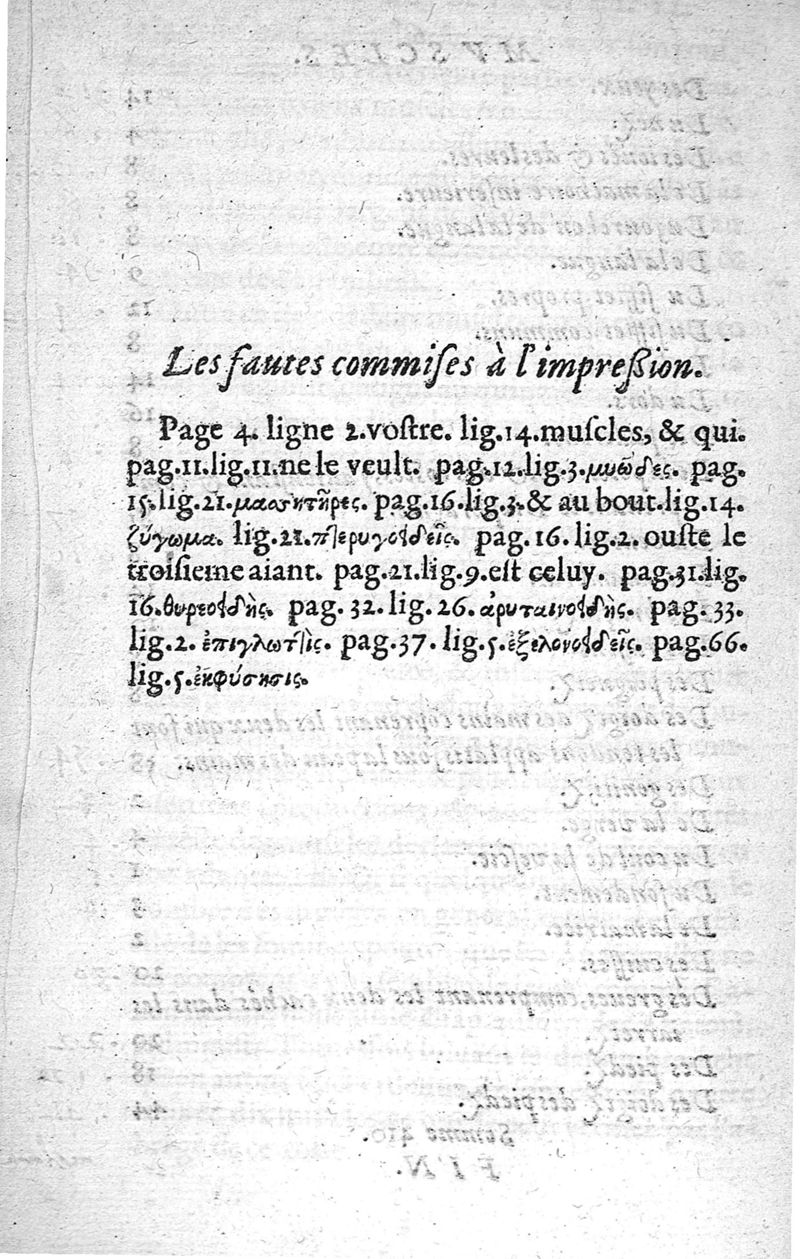 Les fautes commiſes à l'impreßion.
Page 4. ligne 2. voſtre. lig.14. muſcles, & qui.
pag.11.lig.11.ne le veult. pag.12.lig.3.μυώδες. pag.
15.lig.21.μασητῆρες. pag.16.lig.3.& au bout.lig.14.
ζύγωμα. lig.21.πτερυγοειδεῖς. pag.16.lig.2. ouſte le
troiſieme aiant. pag.21.lig.9.eſt celuy. pag.31.lig.
16.θυρεοειδὴς. pag. 32. lig. 26. ἀρυταινοειδὴς. pag. 33.
lig.2. ἐπιγλωττὶς. pag.37. lig.5. pag.66.
lig.5.ἐκφύσησις.